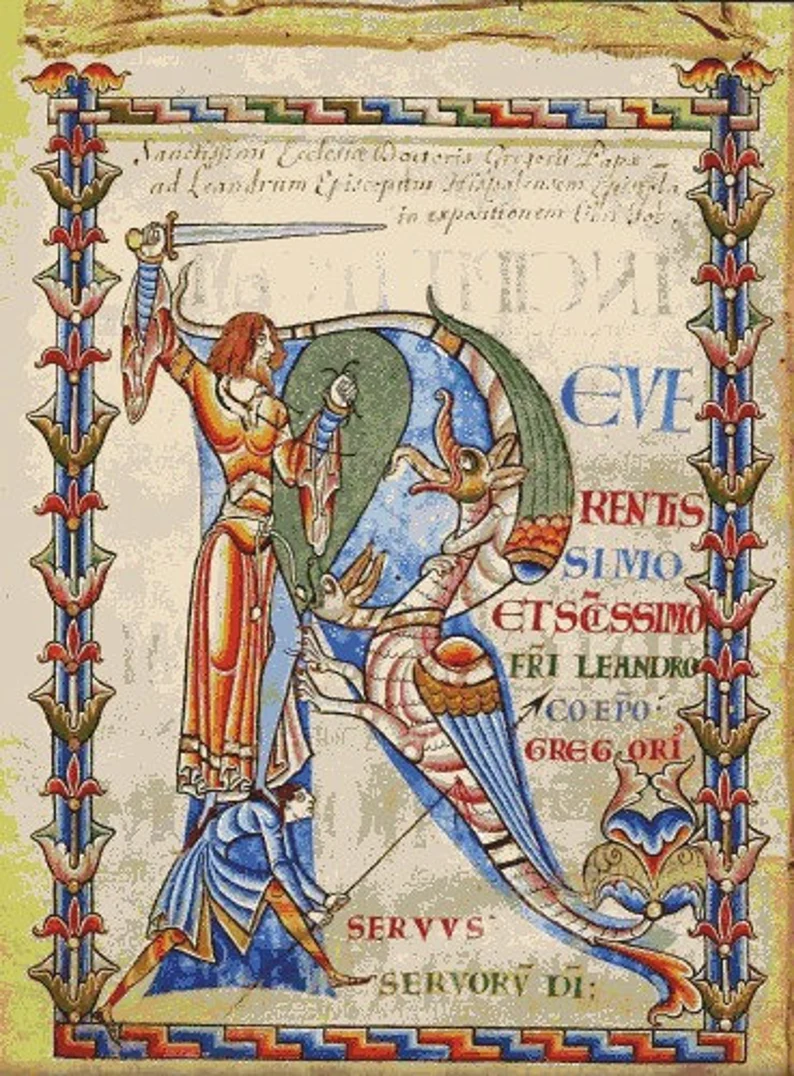 Sanctissimi Ecclesiæ Doctoris Gregorii Papæ
ad Leandrum Episcopum Hispalensem Epistola
in expositionem libri Job.
R
EVE
RENTIS
SIMO
ET SC̄ISSIMO
FR̄I LEANDRO
COEP̄O
GREGORI
SERVVS
SERVORV̄ DI: